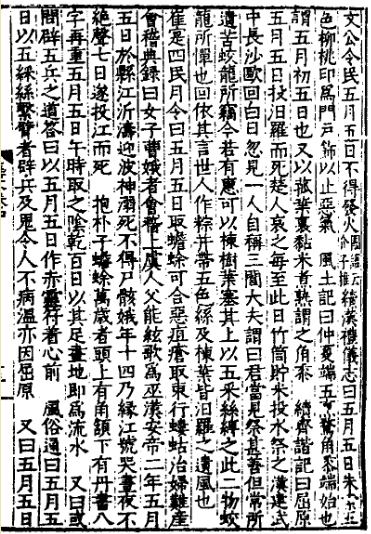 文公令民五月五日不得發火國語云為介子推 續漢禮儀志曰五月五日朱索五
色柳桃印爲門戶飾以止惡氣 風土記曰仲夏端五烹鶩角黍端始也
謂五月初五日也又以菰葉裹黏米煮熟謂之角黍 續齊諧記曰屈原
五月五日投汨羅而死楚人哀之每至此日竹筒貯米投水祭之漢建武
中長沙歐回白日忽見一人自稱三閭大夫謂曰君當見祭甚善但常所
遺苦蛟龍所竊今若有惠可以楝樹葉塞其上以五采絲縛之此二物蛟
龍所憚也回依其言世人作粽并帶五色絲及楝葉皆汨羅之遺風也
崔寔四民月令曰五月五日取蟾蜍可合惡疽瘡取東行螻蛄治婦難產
會稽典錄曰女子曹娥者會稽上虞人父能絃歌爲巫漢安帝二年五月
五日於縣江泝濤迎波神溺死不得尸骸娥年十四乃緣江號哭晝夜不
絕聲七日遂投江而死 抱朴子蟾蜍萬歲者頭上有角頷下有丹書八
字再重五月五日午時取之陰乾百日以其足畫地即爲流水 又曰或
問辟五兵之道答曰以五月五日作赤靈符著心前 風俗通曰五月五
日以五綵絲繫臂者辟兵及鬼令人不病溫亦因屈原 又曰五月五日